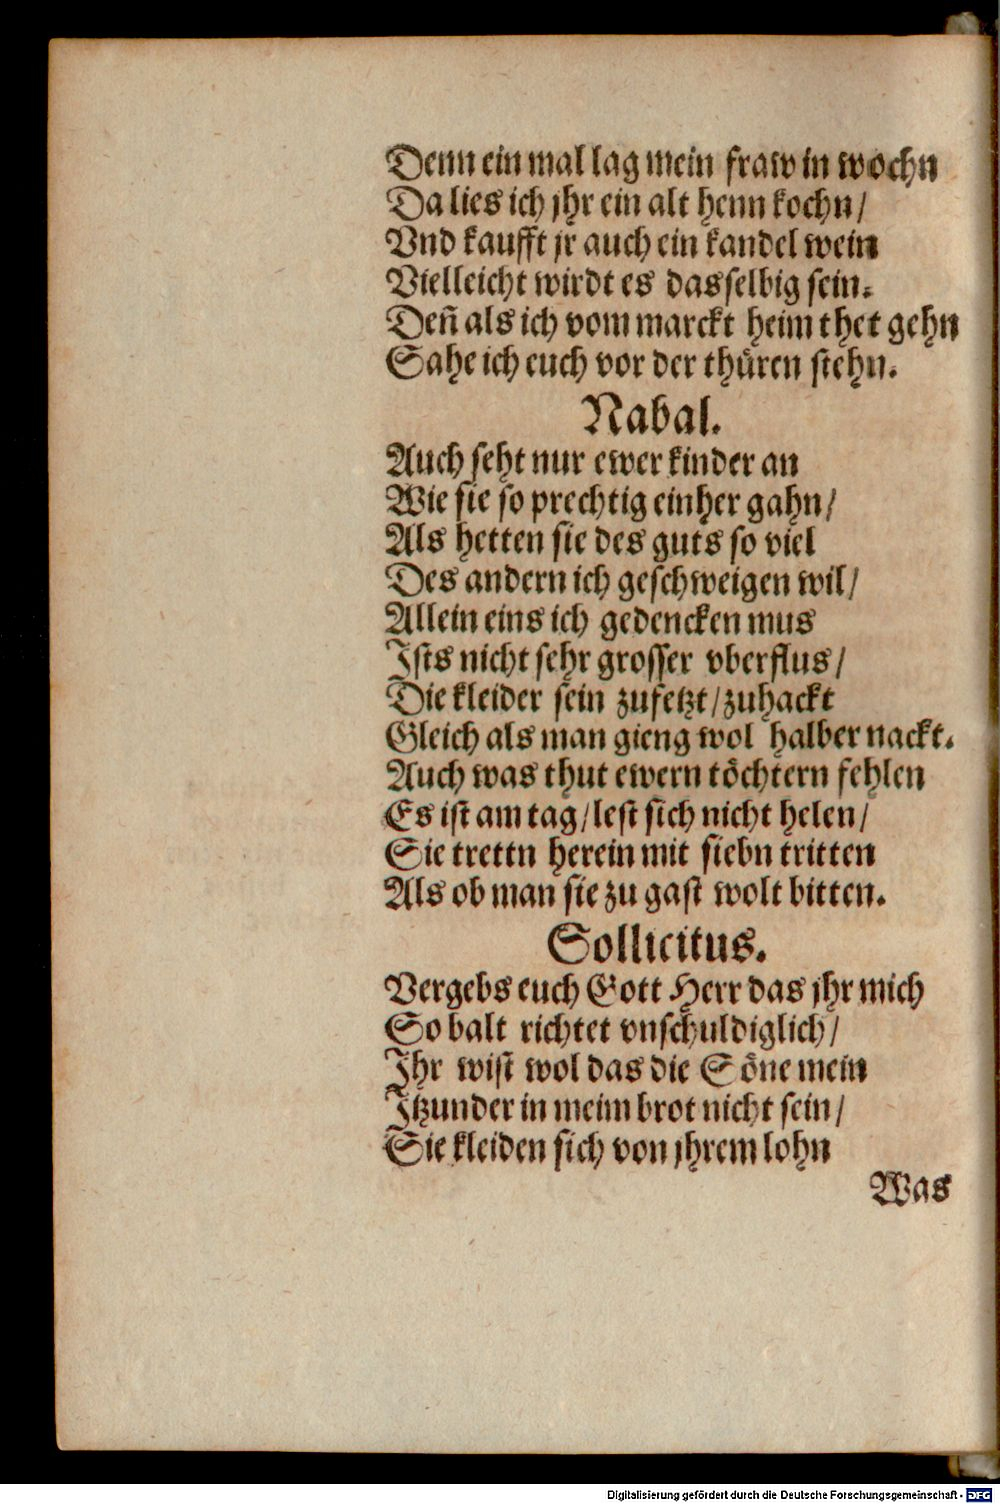 Denn ein mal lag mein fraw in wochn
Da lies ich jhr ein alt henn kochn/
Vnd kaufft jr auch ein kandel wein
Vielleicht wirdt es dasselbig sein.
Deñ als ich vom marckt heim thet gehn
Sahe ich euch vor der thüren stehn.
Nabal.
Auch seht nur ewer kinder an
Wie sie so prechtig einher gahn/
Als hetten sie des guts so viel
Des andern ich geschweigen wil/
Allein eins ich gedencken mus
Ists nicht sehr grosser vberflus/
Die kleider sein zufetzt/zuhackt
Gleich als man gieng wol halber nackt.
Auch was thut ewern töchtern fehlen
Es ist am tag/lest sich nicht helen/
Sie trettn herein mit siebn tritten
Als ob man sie zu gast wolt bitten.
Sollicitus.
Vergebs euch Gott Herr das jhr mich
So balt richtet vnschuldiglich/
Jhr wist wol das die Söne mein
Jtzunder in meim brot nicht sein/
Sie kleiden sich von jhrem lohn
Was
Digitalisierung gefördert durch die Deutsche Forschungsgemeinschaft - DFG